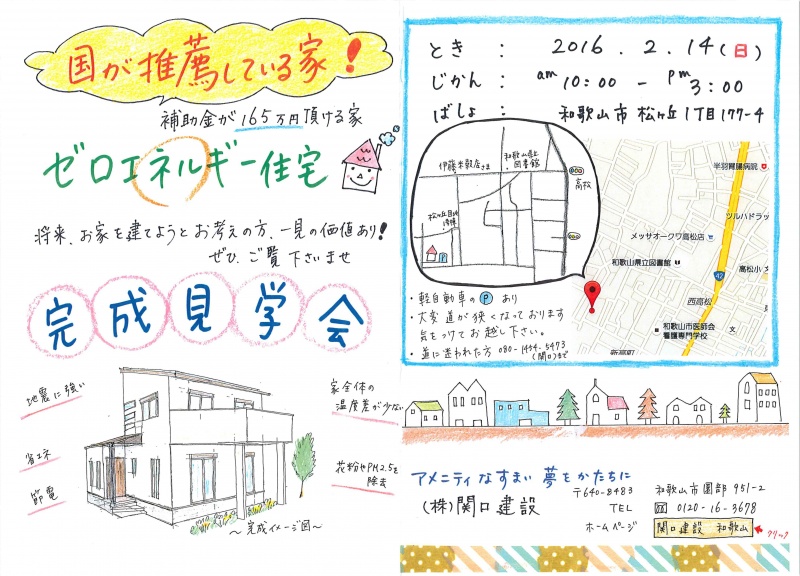 国が推薦している家!
補助金が165万円頂ける家
ゼロエネルギー住宅
将来、お家を建てようとお考えの方、一見の価値あり!
ぜひ、ご覧下さいませ
完成見学会
地震に強い
省エネ
節電
家全体の
温度差が少ない
花粉やPM2.5を
除去
～完成イメージ図～
とき : 2016.2.14(日)
じかん : am10:00 - pm3:00
ばしょ : 和歌山市 松ヶ丘1丁目177-4
伊藤米穀店さま
和歌山県立
図書館
高松
松ヶ丘団地
P
半羽胃腸病院
ツルハドラッ
メッサオークワ高松店
和歌山県立図書館
高松小
42
西高松
和歌山市医師会
看護専門学校
新高町
・軽自動車のP あり
・大変 道が狭くなっております
気をつけてお越し下さい。
・道に迷われた方 080-1434-5473
(関口)まで
アメニティなすまい 夢をかたちに
(株)関口建設
〒640-8483 和歌山市園部951-2
TEL 0120-16-3678
ホームページ 関口建設 和歌山 クリック